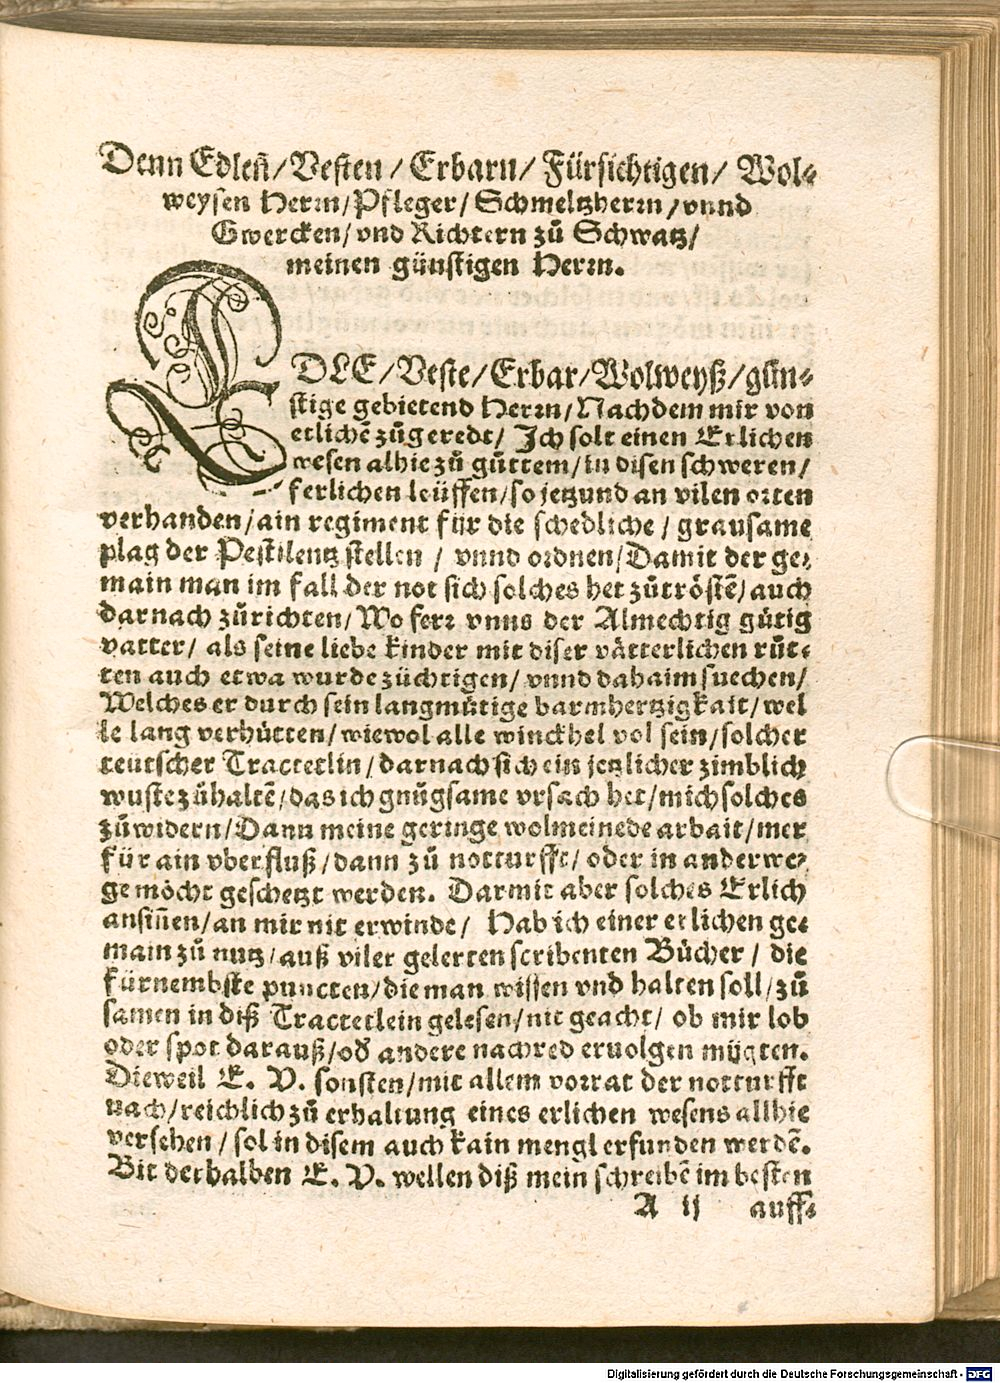 Denn Edleñ/Vesten/Erbarn/Fürsichtigen/Wol-
weysen Herrn/Pfleger/Schmeltzherrn/vnnd
Gwercken/vnd Richtern zů Schwatz/
meinen günstigen Herrn.
EDLE/Veste/Erbar/Wolweyß/gün-
stige gebietend Herrn/Nachdem mir von
etlichẽ zůgeredt/Ich solt einen Erlichen
wesen alhie zů gůttem/in disen schweren/
ferlichen leüffen/so jetzund an vilen orten
verhanden/ain regiment für die schedliche/grausame
plag der Pestilentz stellen/vnnd ordnen/Damit der ge-
main man im fall der not sich solches het zůtröstẽ/auch
darnach zůrichten/Wo ferr vnns der Almechtig gütig
vatter/als seine liebe kinder mit diser vätterlichen růt-
ten auch etwa wurde züchtigen/vnnd dahaim suechen/
Welches er durch sein langmütige barmhertzigkait/wel
le lang verhütten/wiewol alle winckhel vol sein/solcher
teütscher Tractetlin/darnach sich ein jetzlicher zimblich
wuste zůhaltẽ/das ich gnůgsame vrsach het/mich solches
zůwidern/Dann meine geringe wolmeinede arbait/mer
für ain vberfluß/dann zů notturfft/oder in anderwe-
ge möcht geschetzt werden. Darmit aber solches Erlich
ansiñen/an mir nit erwinde/ Hab ich einer erlichen ge-
main zů nutz/auß viler gelerten scribenten Bücher/die
fürnembste puncten/die man wissen vnd halten soll/zů
samen in diß Tractetlein gelesen/nit geacht/ob mir lob
oder spot darauß/od̃ andere nachred eruolgen mügten.
Dieweil E. V. sonsten/mit allem vorrat der notturfft
nach/reichlich zů erhaltung eines erlichen wesens allhie
versehen/sol in disem auch kain mengl erfunden werdẽ.
Bit derhalben E. V. wellen diß mein schreibẽ im besten
A ij auff-
Digitalisierung gefördert durch die Deutsche Forschungsgemeinschaft - DFG